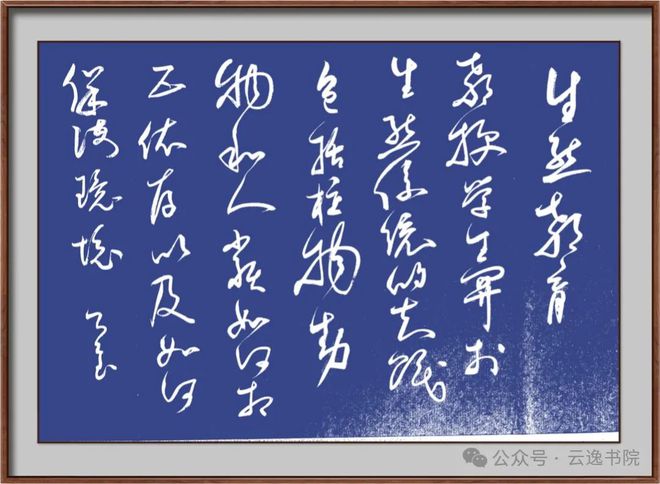 生态教育
教授学生关于
生态系统的知识
包括植物动
物和人类如何相
互依存以及如何
保护环境
公众号 · 云逸书院